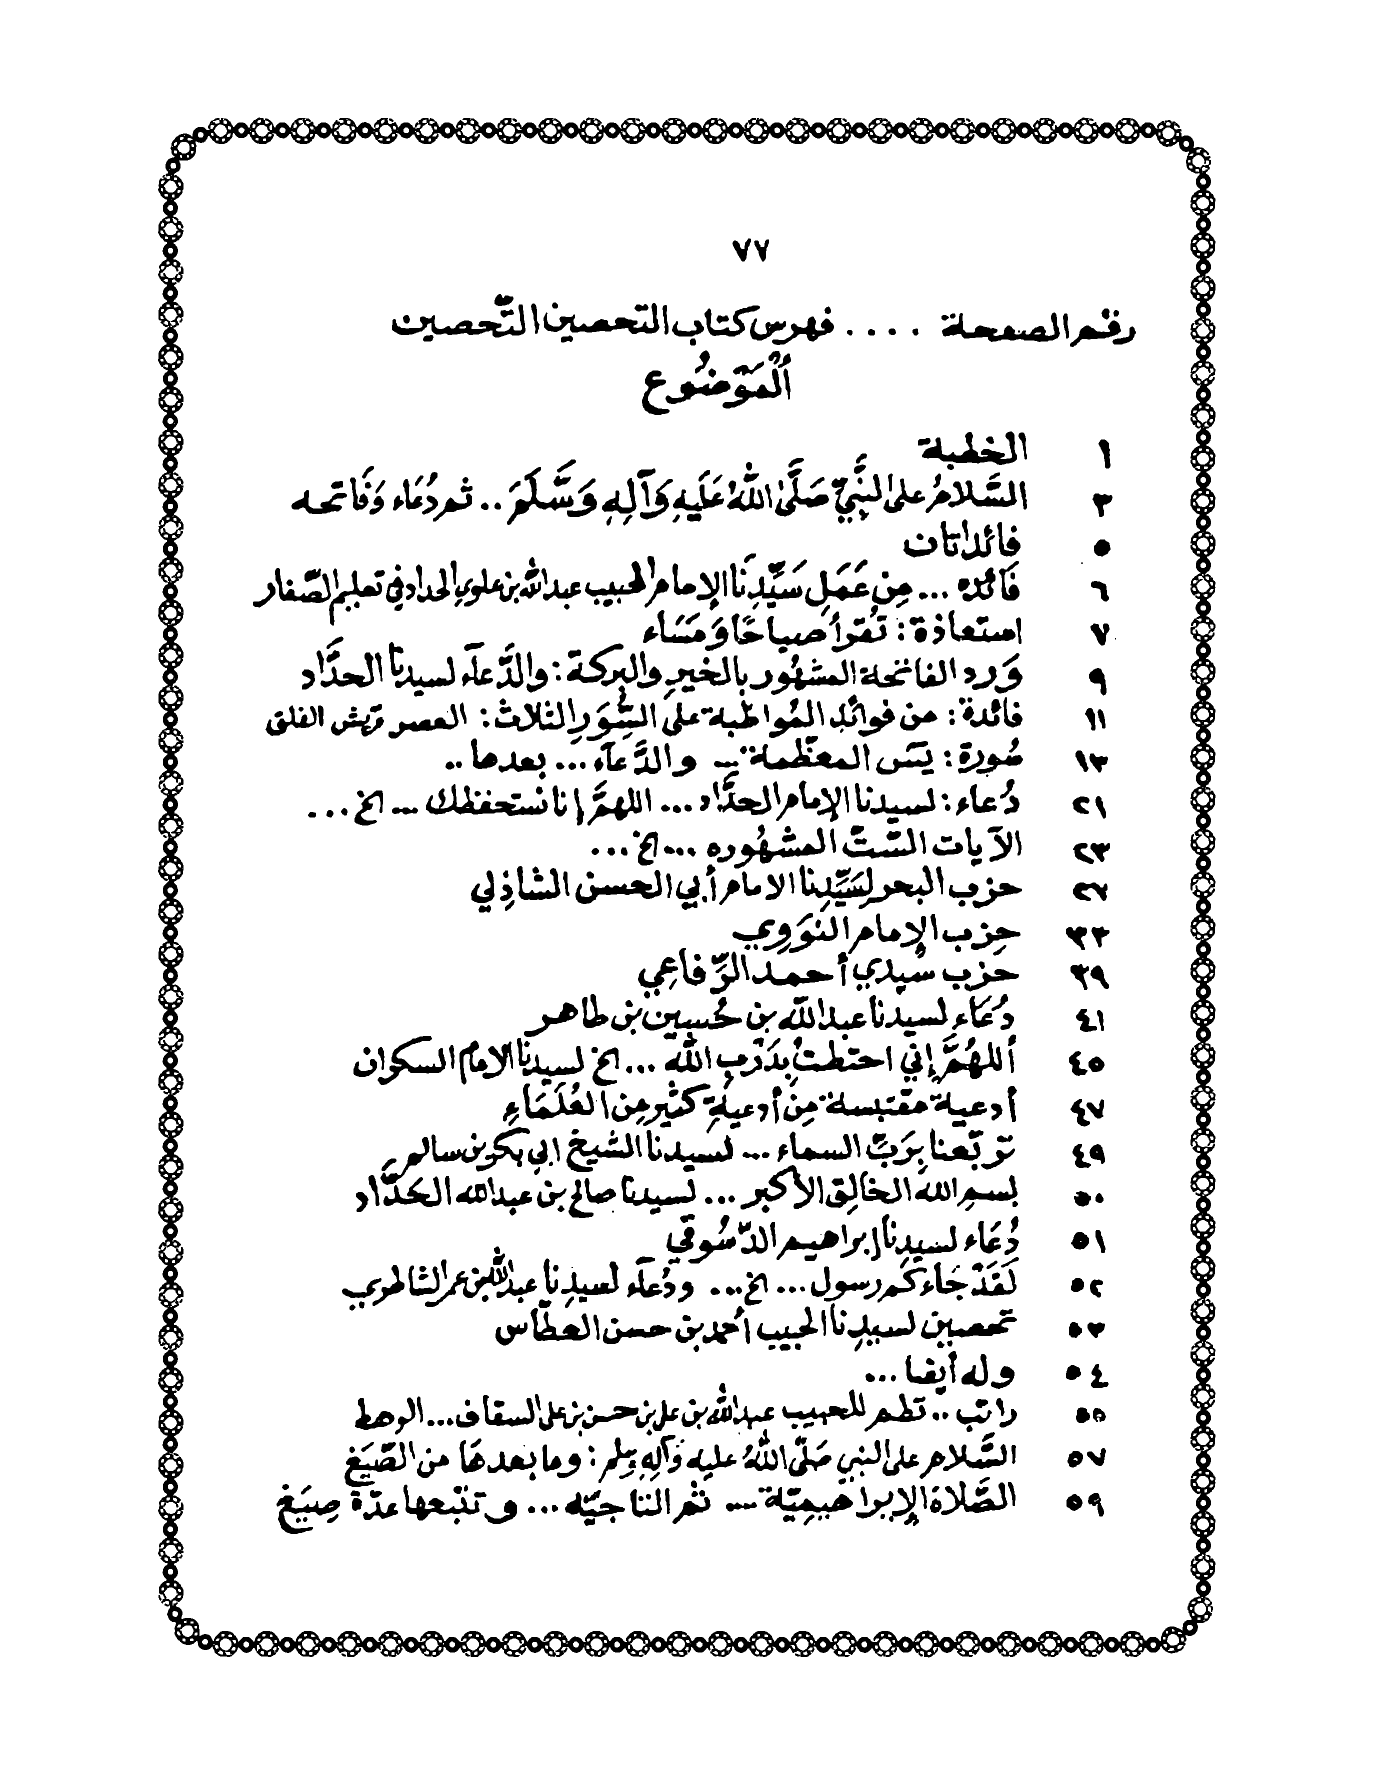 ٧٧
رقم الصفحة .... فهرس كتاب التحصين التَّحصين
اَلْمَوْضُوع
١ الخطبة
٣ السَّلامُ على النبيِّ صَلَّى اللهُ عَلَيهِ وَآلِهِ وَسَّلَمَ .. ثم دُعَاء وَفَاتحه
٥ فائدتان
٦ فَائده ... مِن عَمَلِ سَيِّدِنَا الإمام الحبيب عبدالله بن علوي الحداد في تعليم الصّفار
٧ استعاذة : تُقرأ صباحًا وَمَسَاء
٩ وَرد الفاتحة المشهور بالخيرِ والبركة : والدَّعاَء لسيدنا الحدَّاد
١١ فائدة : من فوائد المُواظبة على السُّوَرِ الثلاث : العصر قريش الفلق
١٣ سُورة : يسَ المعظّمة ... والدَّعاَء ... بعدها ..
٢١ دُعاء : لسيدنا الإمام الحدَّاد ... اللهمَّ إنا نستحفظك ... الخ ...
٢٣ الآيات السّتّ المشهوره ... الخ ...
٢٧ حزب البحر لِسَيِّدِنا الامام أبي الحسن الشاذِلي
٣٣ حِزب الإمام النوَوِي
٣٩ حزب سيدي أحمد الرِّفاعِي
٤١ دُعَاء لسيدنا عبدالله بن حُسين بن طاهر
٤٥ أللهُمَّ إني احتطتُ بِدَرْبِ الله ... الخ لسيدنا الامام السكران
٤٧ أدعية مقتبسة مِن أدعيةِ كثيرِ مِن العُلَمَاءِ
٤٩ تربّعنا بِرَبِّ السماء ... لسيدنا الشيخ ابي بكر بن سالم
٥٠ بسمِ الله الخالِقِ الأكبر ... لسيدنا صالح بن عبدالله الحدَّاد
٥١ دُعَاء لسيدِنا إبراهيم الدّسُوقي
٥٢ لَقَدْ جَاءكُم رسول ... الخ ... ودُعاَء لسيدِنا عبدالله بن عمر الشاطري
٥٣ تحصين لسيدِنا الحبيب أحمد بن حسن العطّاس
٥٤ وله أيضا ...
٥٥ راتب .. نظم للحبيب عبدالله بن علي بن حسن بن علي السقاف ... الوهط
٥٧ السَّلام على النبي صَلّى اللهُ عليه وَآلِهِ وسلم : وما بعدهَا من الصِّيَغِ
٥٩ الصَّلاة الإبراهيمِيَّة ... ثم الناجيّه ... وتتبعها عدّة صِيَغ